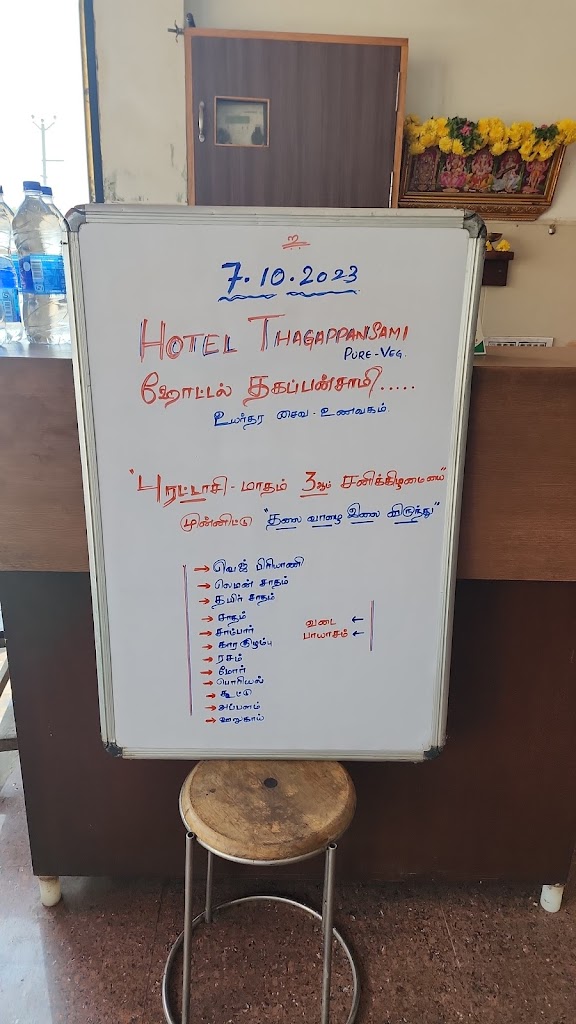 உ
7.10.2023
HOTEL THAGAPPANSAMI
PURE-VEG.
ஹோட்டல் தகப்பன்சாமி.....
உயர்தர சைவ உணவகம்.
"புரட்டாசி - மாதம் 3ஆம் சனிக்கிழமையை"
முன்னிட்டு "தலை வாழை இலை விருந்து"
→ வெஜ் பிரியாணி
→ லெமன் சாதம்
→ தயிர் சாதம்
→ சாதம்
→ சாம்பார்
→ காரகுழம்பு
→ ரசம்
→ மோர்
→ பொரியல்
→ கூட்டு
→ அப்பளம்
→ ஊறுகாய்
வடை ←
பாயாசம் ←